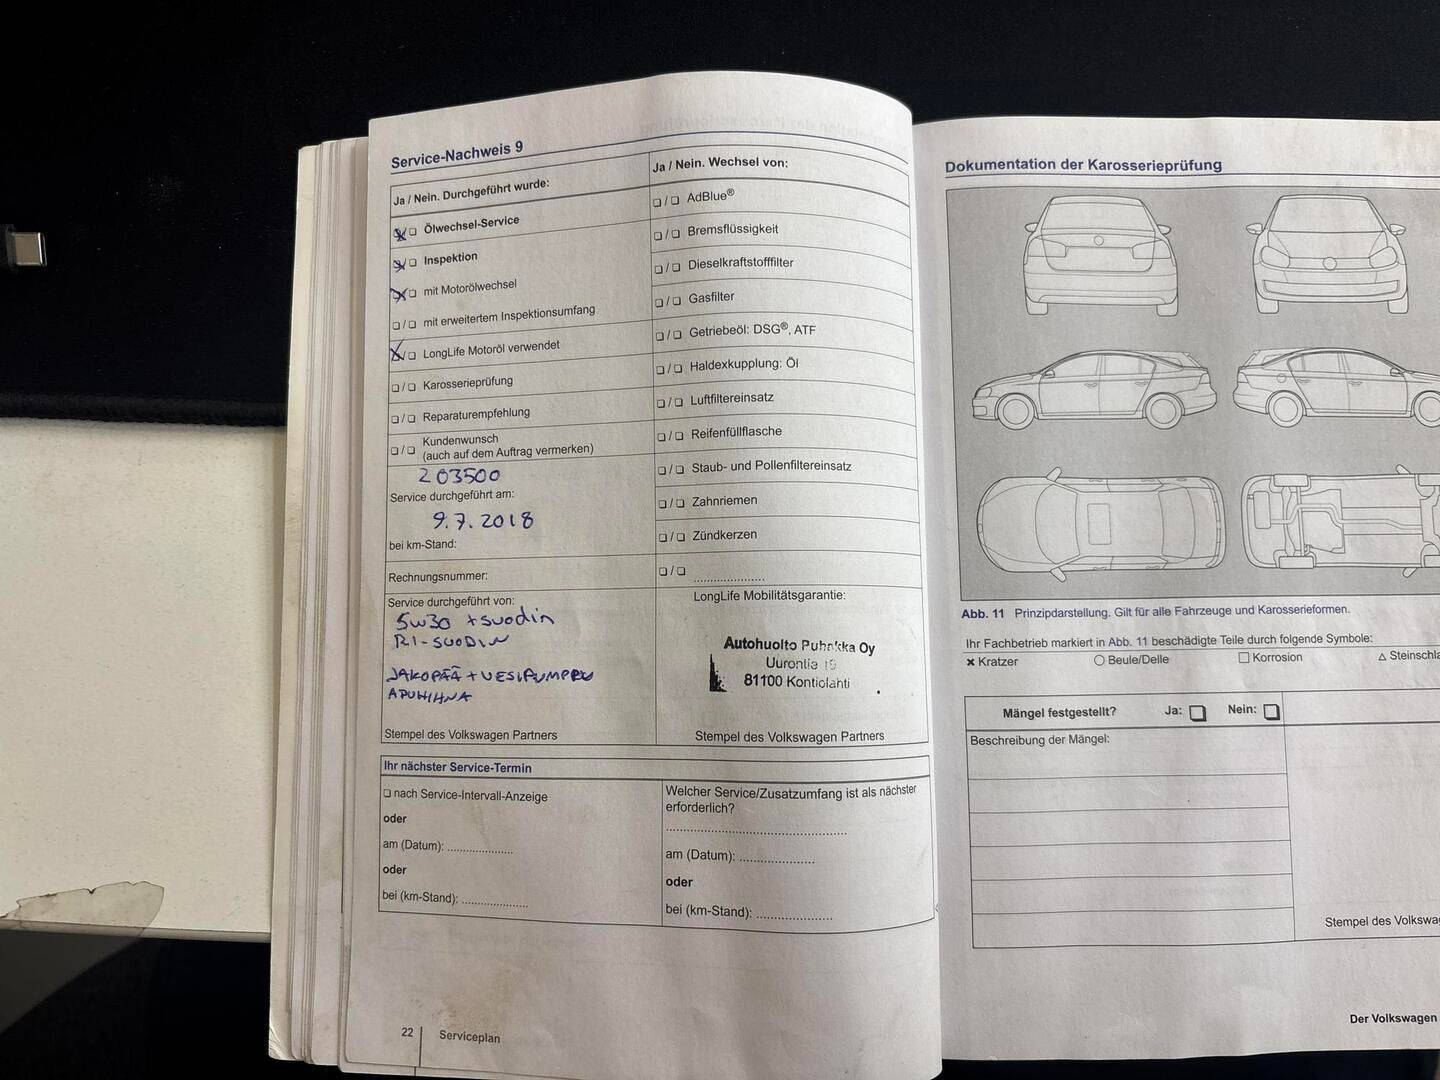 Service-Nachweis 9
Ja / Nein. Durchgeführt wurde:
Ölwechsel-Service
Inspektion
mit Motorölwechsel
❑ / ❑ mit erweitertem Inspektionsumfang
LongLife Motoröl verwendet
❑ / ❑ Karosserieprüfung
❑ / ❑ Reparaturempfehlung
❑ / ❑ Kundenwunsch
(auch auf dem Auftrag vermerken)
203500
Service durchgeführt am:
9.7.2018
bei km-Stand:
Rechnungsnummer:
Service durchgeführt von:
5W30 +suodin
RI-SUODIN
JAKOPÄÄ + VESIPUMPPU
APUHIHNA
Stempel des Volkswagen Partners
Ja / Nein. Wechsel von:
❑ / ❑ AdBlue®
❑ / ❑ Bremsflüssigkeit
❑ / ❑ Dieselkraftstofffilter
❑ / ❑ Gasfilter
❑ / ❑ Getriebeöl: DSG®, ATF
❑ / ❑ Haldexkupplung: Öl
❑ / ❑ Luftfiltereinsatz
❑ / ❑ Reifenfüllflasche
❑ / ❑ Staub- und Pollenfiltereinsatz
❑ / ❑ Zahnriemen
❑ / ❑ Zündkerzen
❑ / ❑ ....................
LongLife Mobilitätsgarantie:
Autohuolto Puhakka Oy
Uurontie
81100 Kontiolahti
Stempel des Volkswagen Partners
Ihr nächster Service-Termin
❑ nach Service-Intervall-Anzeige
oder
am (Datum): ....................
oder
bei (km-Stand): ....................
Welcher Service/Zusatzumfang ist als nächster
erforderlich?
..................................................
am (Datum): ......................
oder
bei (km-Stand): ......................
22
Serviceplan
Dokumentation der Karosserieprüfung
Abb. 11 Prinzipdarstellung. Gilt für alle Fahrzeuge und Karosserieformen.
Ihr Fachbetrieb markiert in Abb. 11 beschädigte Teile durch folgende Symbole:
× Kratzer
○ Beule/Delle
□ Korrosion
△ Steinschla
Mängel festgestellt?
Ja: ❑
Nein: ❑
Beschreibung der Mängel:
Stempel des Volkswag
Der Volkswagen